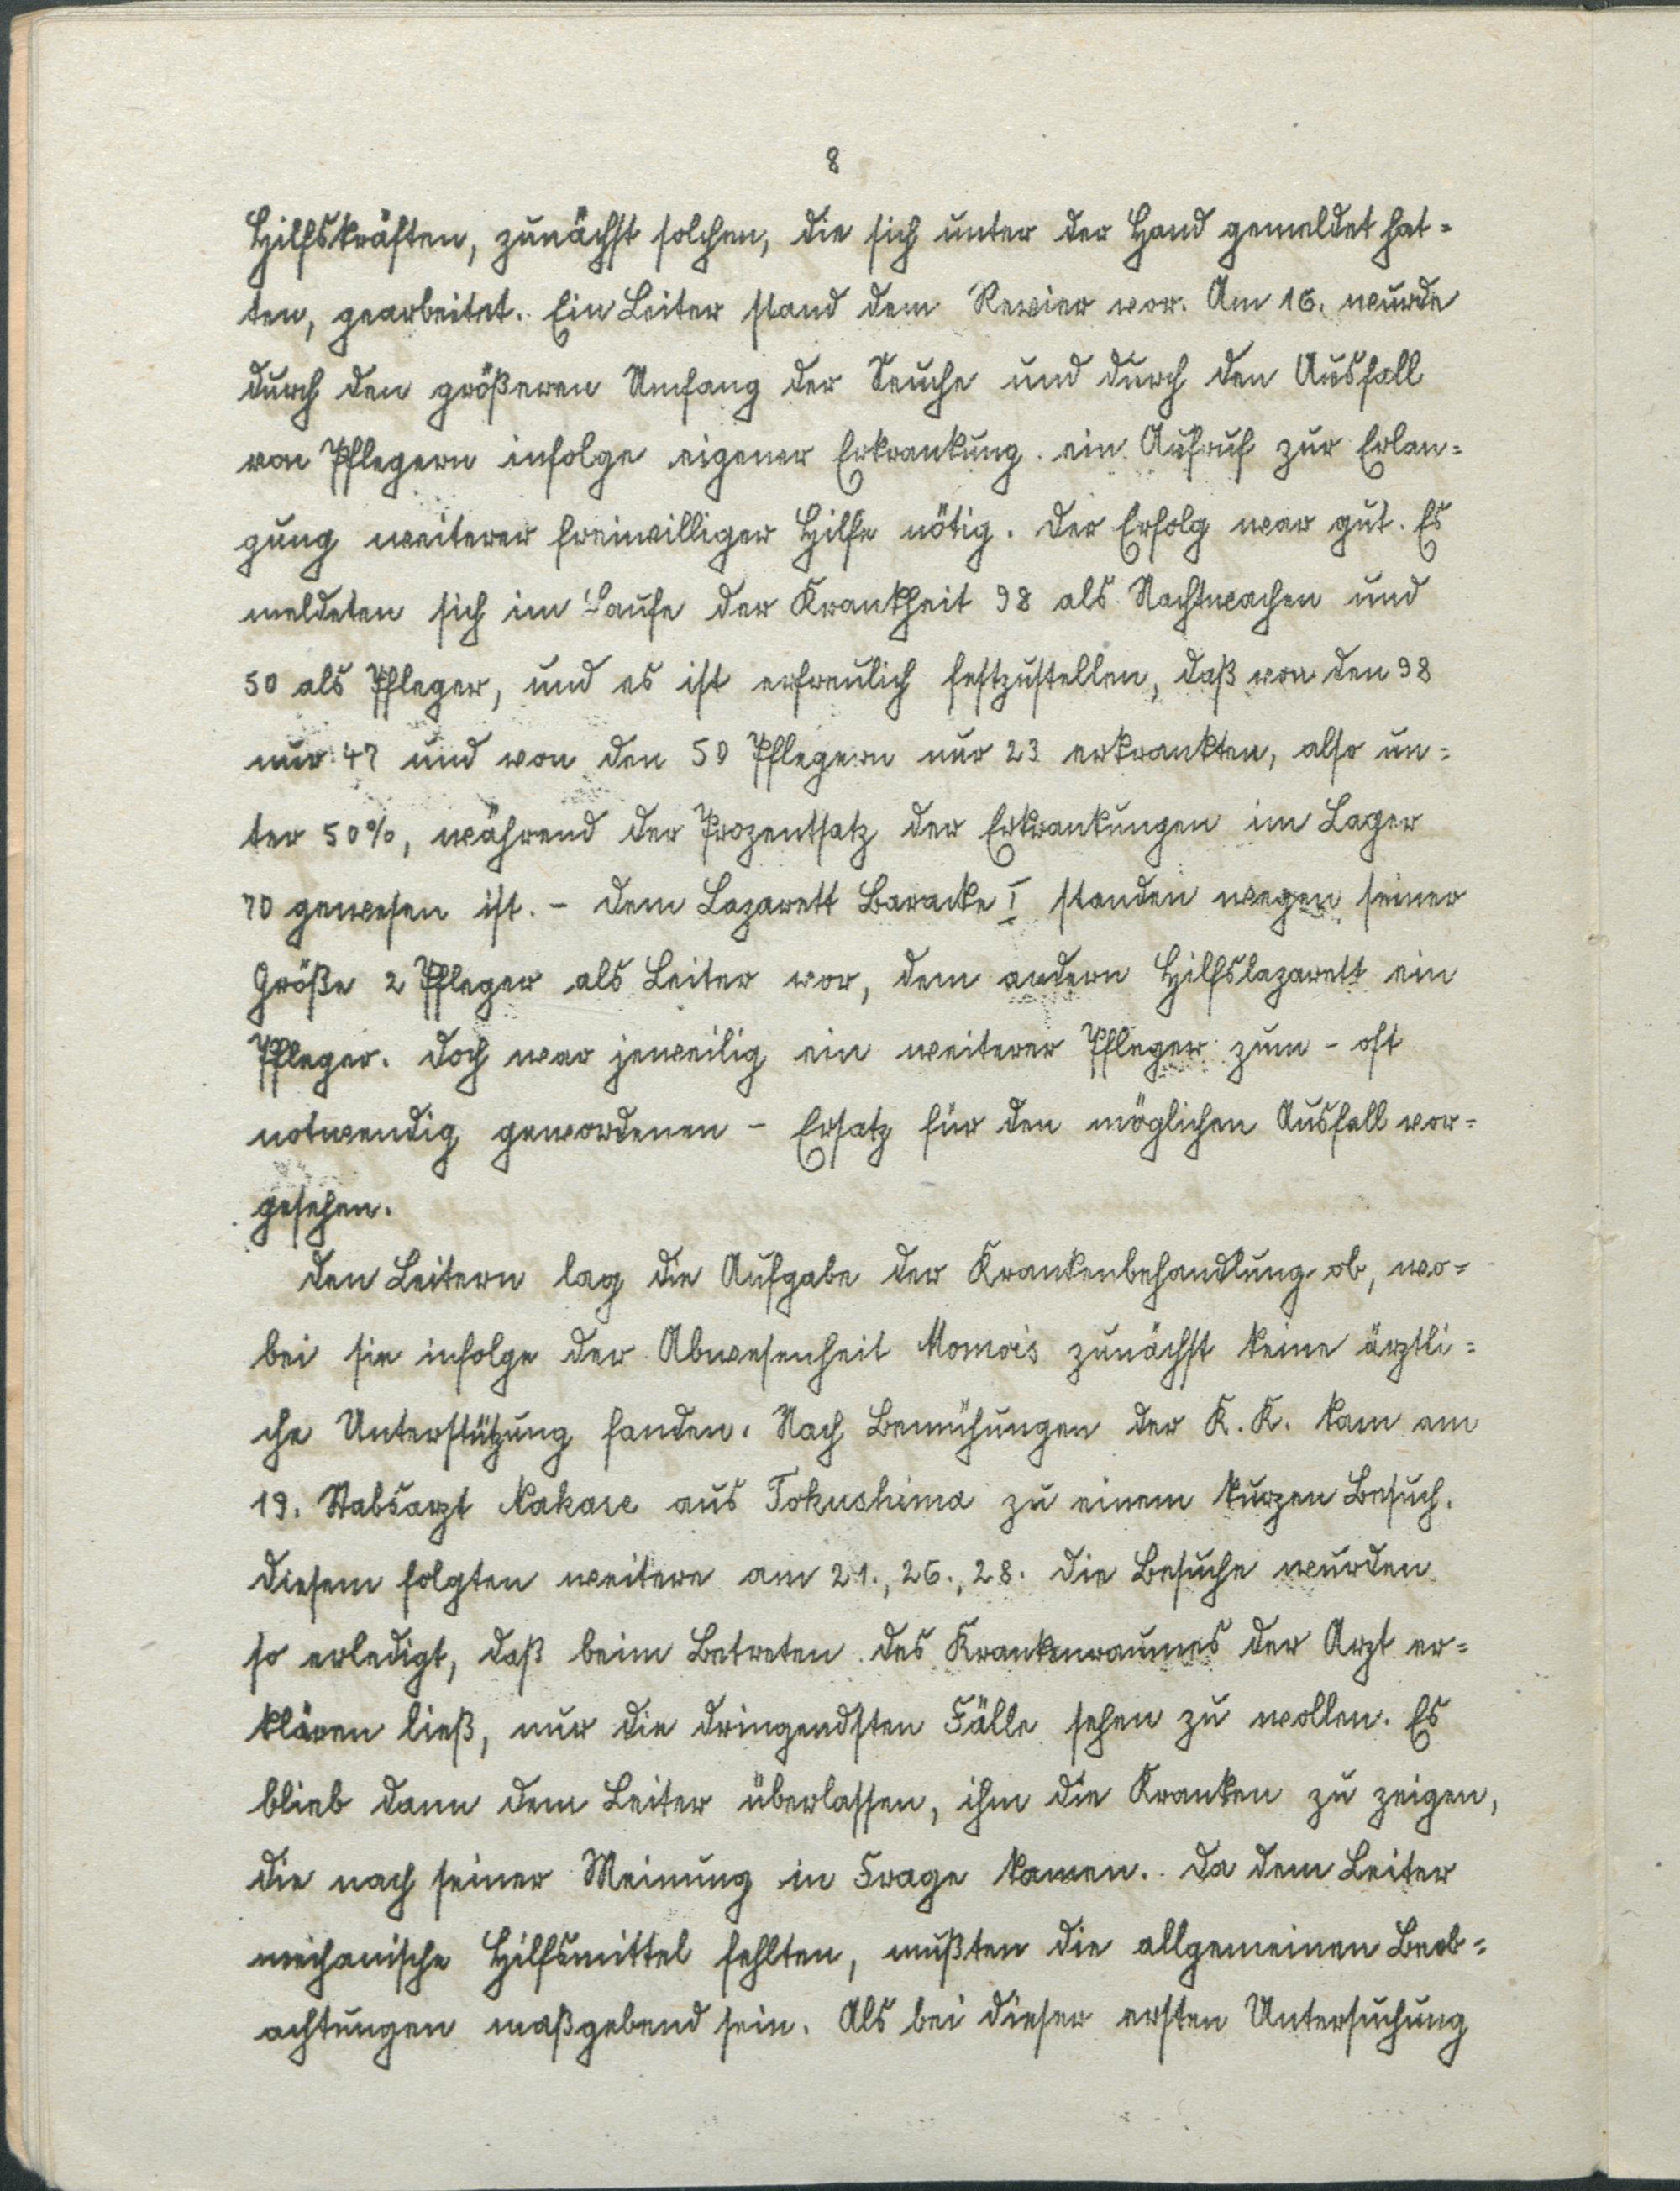 8
Hilfskräften, zunächst solchen, die sich unter der Hand gemeldet hat-
ten, gearbeitet. Ein Leiter stand dem Revier vor. Am 16. wurde
durch den größeren Umfang der Seuche und durch den Ausfall
von Pflegern infolge eigener Erkrankung ein Aufruf zur Erlan-
gung weiterer freiwilliger Hilfe nötig. Der Erfolg war gut. Es
meldeten sich im Laufe der Krankheit 98 als Nachtwachen und
50 als Pfleger, und es ist erfreulich festzustellen, daß von den 98
nur 47 und von den 50 Pflegern nur 23 erkrankten, also un-
ter 50%, während der Prozentsatz der Erkrankungen im Lager
70 gewesen ist. - Dem Lazarett Baracke I standen wegen seiner
Größe 2 Pfleger als Leiter vor, dem andern Hilfslazarett ein
Pfleger. Doch war jeweilig ein weiterer Pfleger zum - oft
notwendig gewordenen - Ersatz für den möglichen Ausfall vor-
gesehen.
Den Leitern lag die Aufgabe der Krankenbehandlung ob, wo-
bei sie infolge der Abwesenheit Momois zunächst keine ärztli-
che Unterstützung fanden. Nach Bemühungen der K.K. kam am
19. Stabsarzt Nakase aus Tokushima zu einem kurzen Besuch.
Diesem folgten weitere am 21., 26., 28. Die Besuche wurden
so erledigt, daß beim Betreten des Krankenraumes der Arzt er-
klären ließ, nur die dringendsten Fälle sehen zu wollen. Es
blieb dann dem Leiter überlassen, ihm die Kranken zu zeigen,
die nach seiner Meinung in Frage kamen. Da dem Leiter
mechanische Hilfsmittel fehlten, mußten die allgemeinen Beob-
achtungen maßgebend sein. Als bei dieser ersten Untersuchung